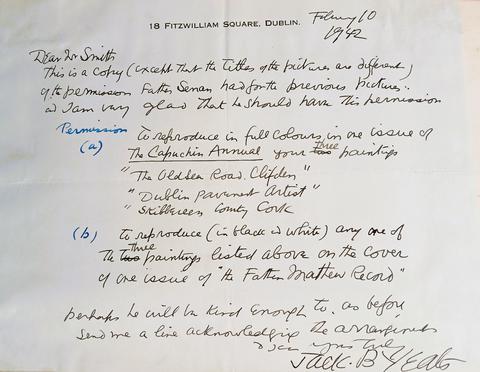 18 FITZWILLIAM SQUARE, DUBLIN.
February 10
1942
Dear Mr Smith
This is a copy (except that the titles of the pictures are different)
of the permission Father Senan had for the previous pictures.
and I am very glad that he should have this permission
Permission to reproduce in full colours, in one issue of
(a) The Capuchin Annual your three paintings
"The Old Sea Road. Clifden"
"Dublin Pavement Artist"
"Skibbereen County Cork
(b) to reproduce (in black & white) any one of
the three paintings listed above on the cover
of one issue of "the Father Mathew Record"
perhaps he will be kind enough to, as before,
send me a line acknowledging the arrangement
yours truly
Jack. B Yeats